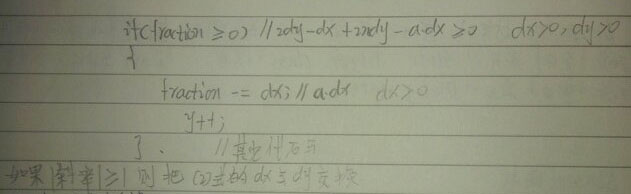 if(fraction ≥0) //2dy-dx+2ndy-a·dx≥0 dx>0, dy>0
{
fraction -= dx; // a·dx dx>0
y++;
} //其它付方与
如果|斜率|≥1 则把(2)式的dx与dy交换